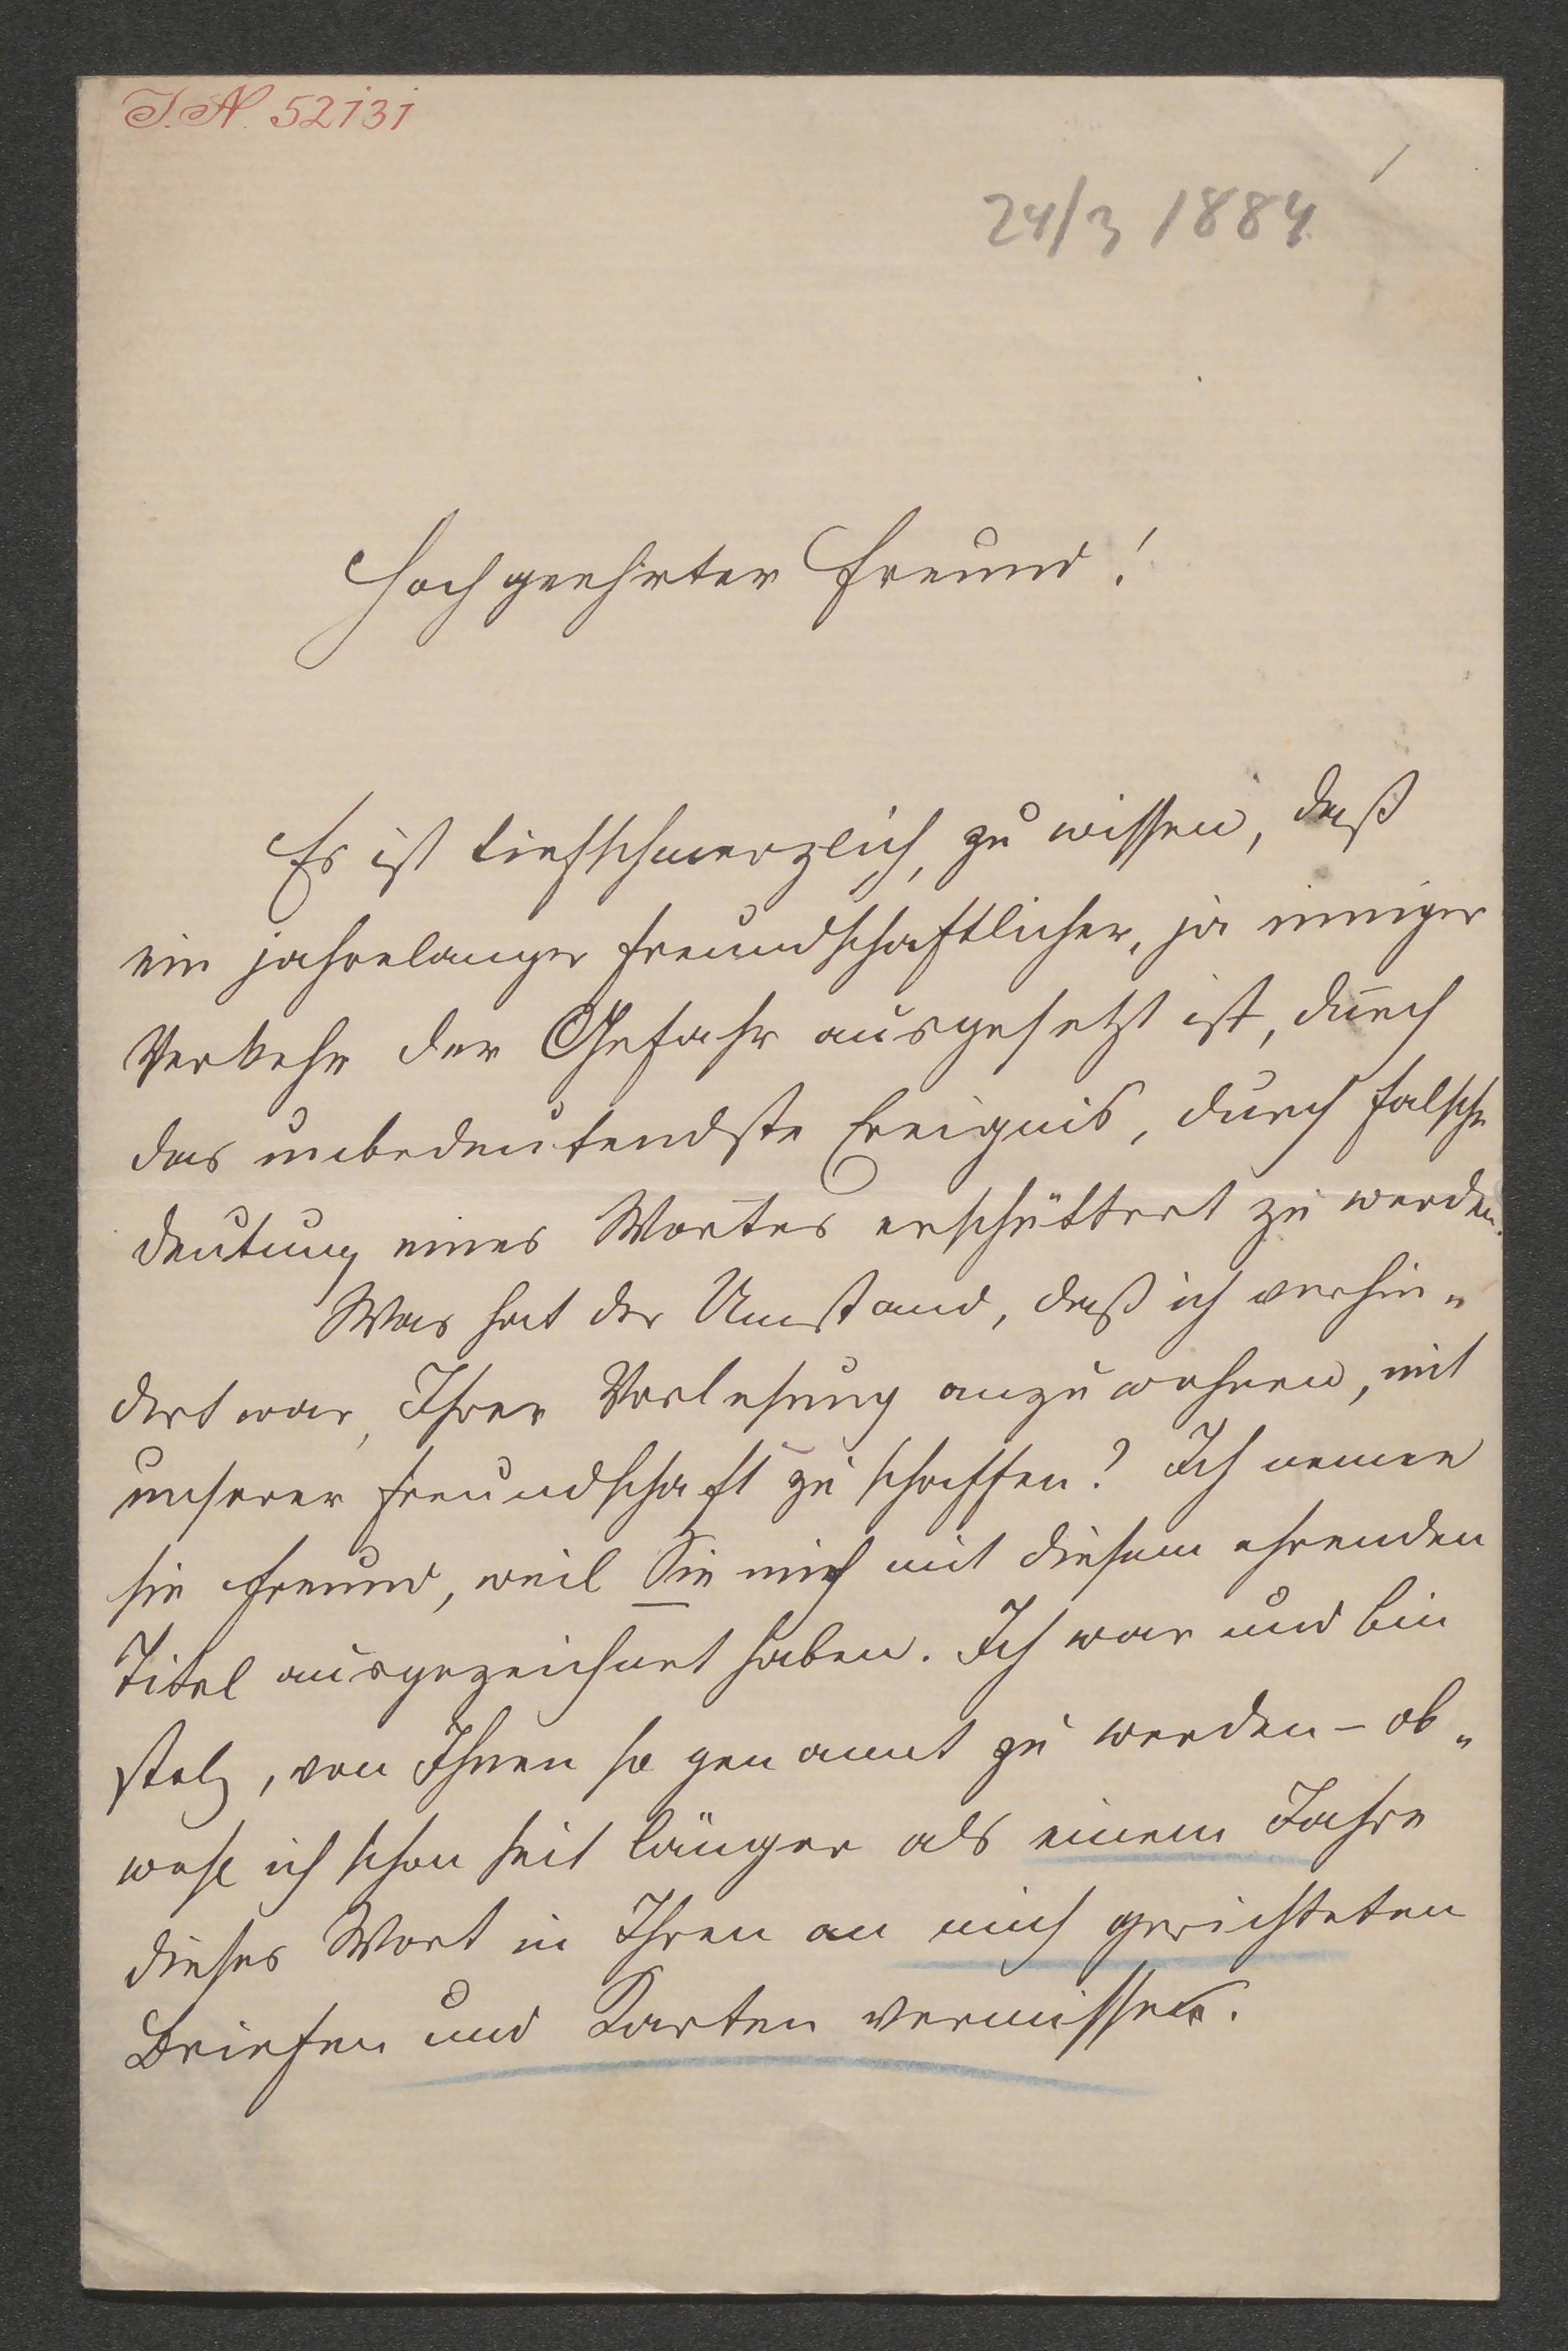 I.N. 52131
24/3 1884
Hochgeehrter Freund!
Es ist tiefschmerzlich, zu wissen, daß
ein jahrelanger freundschaftlicher, ja inniger
Verkehr der Gefahr ausgesetzt ist, durch
das unbedeutendste Ereignis, durch falsche
Deutung eines Wortes erschüttert zu werden.
Was hat der Umstand, daß ich verhin„
dert war, Ihrer Vorlesung anzuwohnen, mit
unserer Freundschaft zu schaffen? Ich nenne
Sie Freund, weil Sie mich mit diesem ehrenden
Titel ausgezeichnet haben. Ich war und bin
stolz, von Ihnen so genannt zu werden – ob„
wohl ich schon seit länger als einem Jahre
dieses Wort in Ihren an mich gerichteten
Briefen und Karten vermisse.